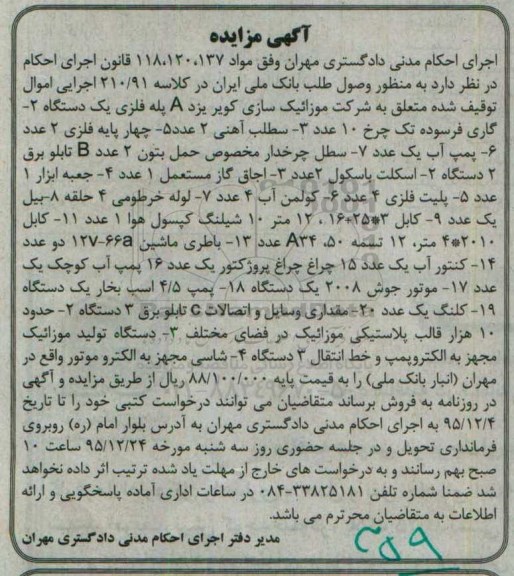 آگهی مزایده
اجرای احکام مدنی دادگستری مهران وفق مواد ۱۱۸،۱۲۰،۱۳۷ قانون اجرای احکام
در نظر دارد به منظور وصول طلب بانک ملی ایران در کلاسه ۲۱۰/۹۱ اجرایی اموال
توقیف شده متعلق به شرکت موزائیک سازی کویر یزد A پله فلزی یک دستگاه ۲-
گاری فرسوده تک چرخ ۱۰ عدد ۳- سطلب آهنی ۲ عدد۵- چهار پایه فلزی ۲ عدد
۶- پمپ آب یک عدد ۷- سطل چرخدار مخصوص حمل بتون ۲ عدد B تابلو برق
۲ دستگاه ۲- اسکلت باسکول ۲عدد ۳- اجاق گاز مستعمل ۱ عدد ۴- جعبه ابزار ۱
عدد ۵- پلیت فلزی ۴ عدد ۶- کولمن آب ۴ عدد ۷- لوله خرطومی ۴ حلقه ۸-بیل
یک عدد ۹- کابل ۳*۲۵+۱۶، ۱۲ متر ۱۰ شیلنگ کپسول هوا ۱ عدد ۱۱- کابل
۴*۲۰۱۰ متر، ۱۲ تسمه ۵۰، A۳۴ عدد ۱۳- باطری ماشین ۶۶a-۱۲۷ دو عدد
۱۴- کنتور آب یک عدد ۱۵ چراغ چراغ پروژکتور یک عدد ۱۶ پمپ آب کوچک یک
عدد ۱۷- موتور جوش ۲۰۰۸ یک دستگاه ۱۸- پمپ ۴/۵ اسب بخار یک دستگاه
۱۹- کلنگ یک عدد ۲۰- مقداری وسایل و اتصالات c تابلو برق ۳ دستگاه ۲- حدود
۱۰ هزار قالب پلاستیکی موزائیک در فضای مختلف ۳- دستگاه تولید موزائیک
مجهز به الکتروپمپ و خط انتقال ۳ دستگاه ۴- شاسی مجهز به الکترو موتور واقع در
مهران (انبار بانک ملی) را به قیمت پایه ۸۸/۱۰۰/۰۰۰ ریال از طریق مزایده و آگهی
در روزنامه به فروش برساند متقاضیان می توانند درخواست کتبی خود را تا تاریخ
۹۵/۱۲/۴ به اجرای احکام مدنی دادگستری مهران به آدرس بلوار امام (ره) روبروی
فرمانداری تحویل و در جلسه حضوری روز سه شنبه مورخه ۹۵/۱۲/۲۴ ساعت ۱۰
صبح بهم رسانند و به درخواست های خارج از مهلت یاد شده ترتیب اثر داده نخواهد
شد ضمنا شماره تلفن ۳۳۸۲۵۱۸۱-۰۸۴ در ساعات اداری آماده پاسخگویی و ارائه
اطلاعات به متقاضیان محرترم می باشد.
مدیر دفتر اجرای احکام مدنی دادگستری مهران